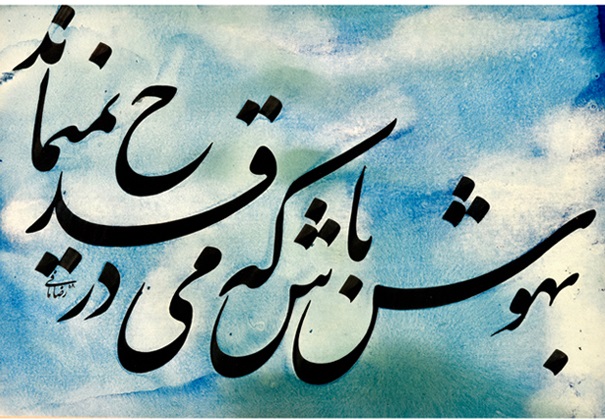 بهوش باش که می در قدح نمیماند